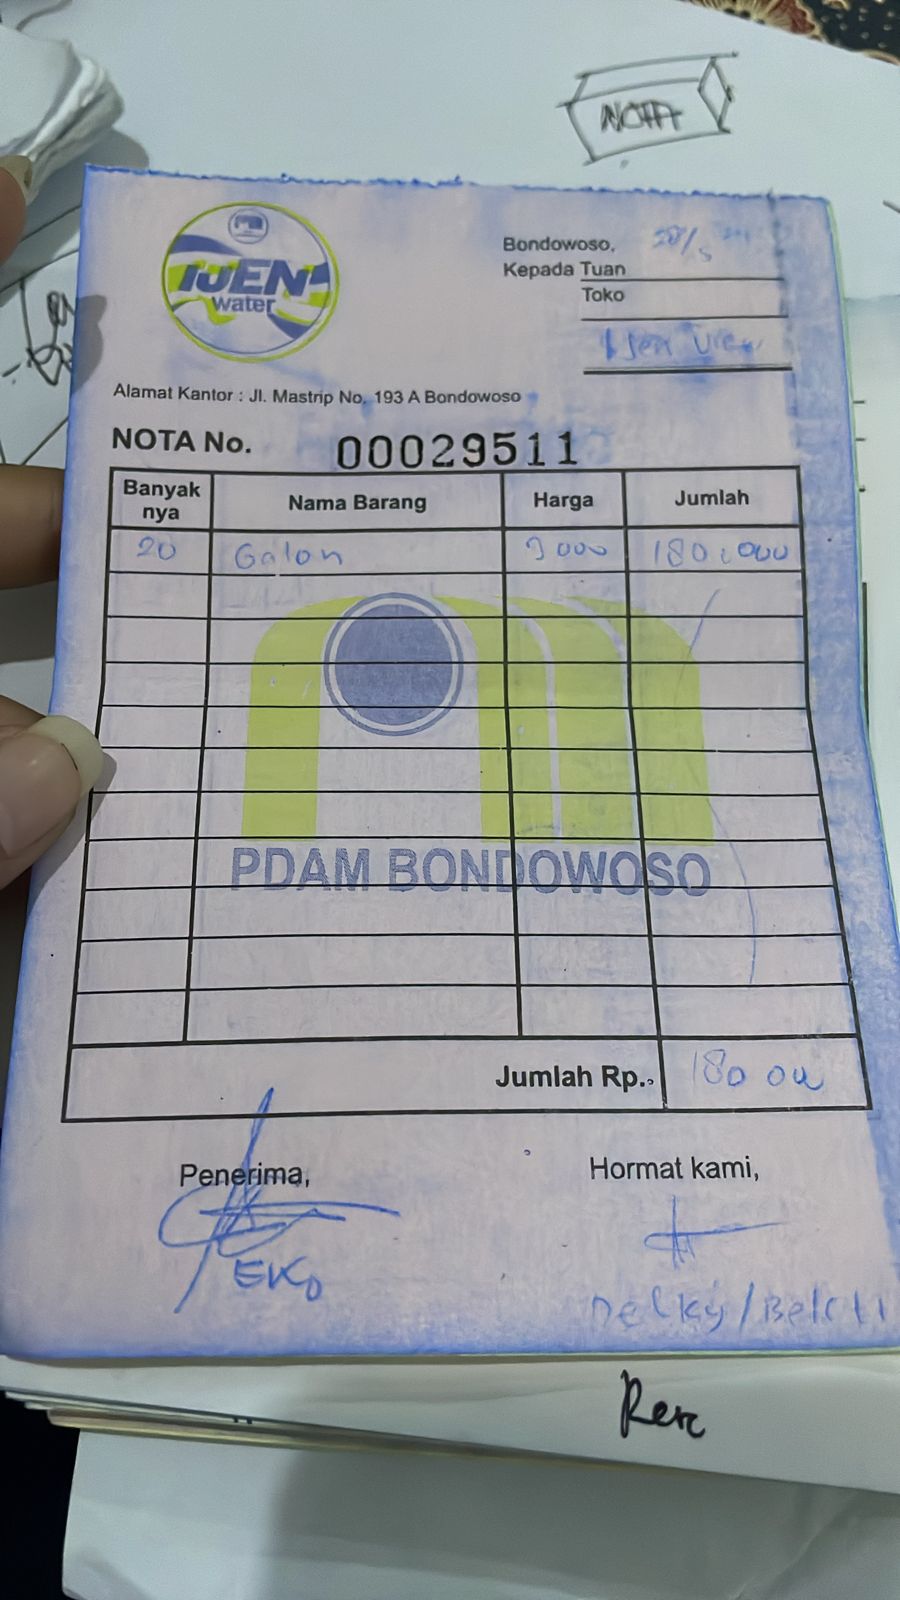 NOTA
IJEN
water
Bondowoso, 28/5
Kepada Tuan
Toko
Ijen View
Alamat Kantor : Jl. Mastrip No. 193 A Bondowoso
NOTA No. 00029511
Banyak nya Nama Barang Harga Jumlah
20 Galon 9000 180.000
PDAM BONDOWOSO
Jumlah Rp. 180 00
Penerima, Hormat kami,
EKO